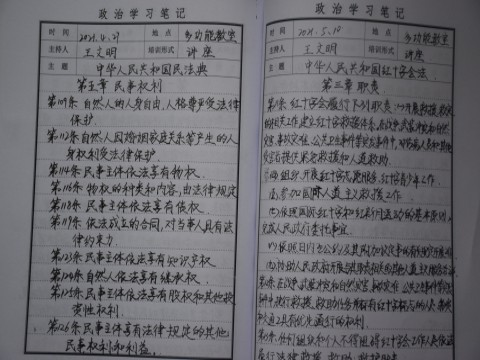 政治学习笔记
时间 2021.4.21 地点 多功能教室
主持人 王文明 培训形式 讲座
主题 中华人民共和国民法典
第五章 民事权利
第109条 自然人的人身自由、人格尊严受法律
保护.
第112条 自然人因婚姻家庭关系等产生的人
身权利受法律保护.
第114条 民事主体依法享有物权.
第116条 物权的种类和内容,由法律规定
第118条 民事主体依法享有债权.
第119条 依法成立的合同,对当事人具有法
律约束力.
第123条 民事主体依法享有知识产权.
第124条 自然人依法享有继承权.
第125条 民事主体依法享有股权和其他投
资性权利.
第126条 民事主体享有法律规定的其他
民事权利和利益.
政治学习笔记
时间 2021.5.10 地点 多功能教室
主持人 王文明 培训形式 讲座
主题 中华人民共和国红十字会法.
第三章 职责.
第11条 红十字会履行下列职责:(一)开展救援、救灾
的相关工作,建立红十字应急救援体系.在战争、武装冲突和自然
灾害、事故灾难、公共卫生事件等突发事件中,对伤病人员和其他受
害者提供紧急救援和人道救助.
组织开展红十字志愿服务、红十字青少年工作.
参加国际人道主义救援工作.
国际红十字和红新月运动的基本原则,
完成人民政府委托事宜.
依照日内瓦公约及其附加议定书的有关规定开展工作
协助人民政府开展与其职责相关的其他人道主义服务活动.
在战争、武装冲突和自然灾害、事故灾难、公共卫生事件等突发
执行救援、救助任务并标有红十字标志的人员、物资
和交通工具有优先通行的权利.
任何组织和个人不得阻碍红十字会工作人员依法